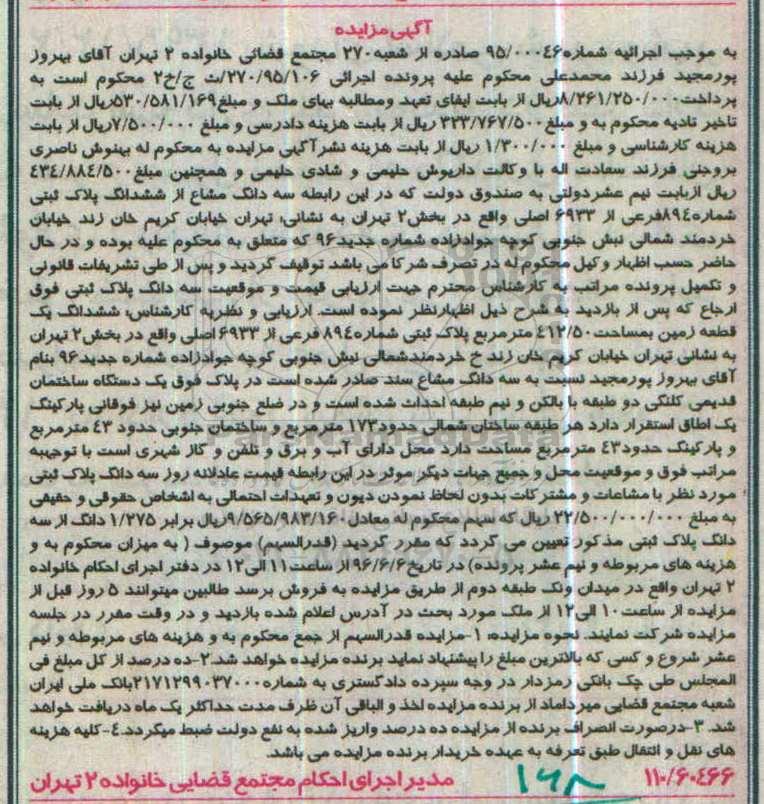 آگهی مزایده
به موجب اجرائیه شماره۹۵/۰۰۰۴۶ صادره از شعبه۲۷۰ مجتمع قضائی خانواده ۲ تهران آقای بهروز
پورمجید فرزند محمدعلی محکوم علیه پرونده اجرائی ۲۷۰/۹۵/۱۰۶/ث ج/خ۲ محکوم است به
پرداخت۸/۲۶۱/۲۵۰/۰۰۰ریال از بابت ایفای تعهد ومطالبه بهای ملک و مبلغ۵۳۰/۵۸۱/۱۶۹ریال از بابت
تاخیر تادیه محکوم به و مبلغ۳۲۳/۷۶۷/۵۰۰ ریال از بابت هزینه دادرسی و مبلغ ۷/۵۰۰/۰۰۰ریال از بابت
هزینه کارشناسی و مبلغ ۱/۳۰۰/۰۰۰ ریال از بابت هزینه نشرآگهی مزایده به محکوم له بهنوش ناصری
بروجنی فرزند سعادت اله با وکالت داریوش حلیمی و شادی حلیمی و همچنین مبلغ۴۳۴/۸۸۴/۵۰۰
ریال ازبابت نیم عشردولتی به صندوق دولت که در این رابطه سه دانگ مشاع از ششدانگ پلاک ثبتی
شماره۸۹۴فرعی از ۶۹۳۳ اصلی واقع در بخش۲ تهران به نشانی؛ تهران خیابان کریم خان زند خیابان
خردمند شمالی نبش جنوبی کوچه جوادزاده شماره جدید۹۶ که متعلق به محکوم علیه بوده و در حال
حاضر حسب اظهار وکیل محکوم له در تصرف شرکا می باشد توقیف گردید و پس از طی تشریفات قانونی
و تکمیل پرونده مراتب به کارشناس محترم جهت ارزیابی قیمت و موقعیت سه دانگ پلاک ثبتی فوق
ارجاع که پس از بازدید به شرح ذیل اظهارنظر نموده است. ارزیابی و نظریه کارشناس؛ ششدانگ یک
قطعه زمین بمساحت۴۱۲/۵۰ مترمربع پلاک ثبتی شماره۸۹۴ فرعی از ۶۹۳۳ اصلی واقع در بخش۲ تهران
به نشانی تهران خیابان کریم خان زند خ خردمندشمالی نبش جنوبی کوچه جوادزاده شماره جدید۹۶ بنام
آقای بهروز پورمجید نسبت به سه دانگ مشاع سند صادر شده است در پلاک فوق یک دستگاه ساختمان
قدیمی کلنگی دو طبقه با بالکن و نیم طبقه احداث شده است و در ضلع جنوبی زمین نیز فوقانی پارکینگ
یک اطاق استقرار دارد هر طبقه ساختان شمالی حدود۱۷۳ مترمربع و ساختمان جنوبی حدود ۴۳ مترمربع
و پارکینگ حدود۴۳ مترمربع مساحت دارد محل دارای آب و برق و تلفن و گاز شهری است با توجهبه
مراتب فوق و موقعیت محل و جمیع جهات دیگر موثر در این رابطه قیمت عادلانه روز سه دانگ پلاک ثبتی
مورد نظر با مشاعات و مشترکات بدون لحاظ نمودن دیون و تعهدات احتمالی به اشخاص حقوقی و حقیقی
به مبلغ ۲۲/۵۰۰/۰۰۰/۰۰۰ ریال که سهم محکوم له معادل ۹/۵۶۵/۹۸۳/۱۶۰ریال برابر ۱/۲۷۵ دانگ از سه
دانگ پلاک ثبتی مذکور تعیین می گردد که مقرر گردید (قدرالسهم) موصوف ( به میزان محکوم به و
هزینه های مربوطه و نیم عشر پرونده) در تاریخ۹۶/۶/۶ از ساعت۱۱ الی۱۲ در دفتر اجرای احکام خانواده
۲ تهران واقع در میدان ونک طبقه دوم از طریق مزایده به فروش برسد طالبین میتوانند ۵ روز قبل از
مزایده از ساعت۱۰ الی۱۲ از ملک مورد بحث در آدرس اعلام شده بازدید و در وقت مقرر در جلسه
مزایده شرکت نمایند. نحوه مزایده؛ ۱-مزایده قدرالسهم از جمع محکوم به و هزینه های مربوطه و نیم
عشر شروع و کسی که بالاترین مبلغ را پیشنهاد نماید برنده مزایده خواهد شد.۲-ده درصد از کل مبلغ فی
المجلس طی چک بانکی رمزدار در وجه سپرده دادگستری به شماره۲۱۷۱۲۹۹۰۳۷۰۰۰بانک ملی ایران
شعبه مجتمع قضایی میرداماد از برنده مزایده اخذ و الباقی آن ظرف مدت حداکثر یک ماه دریافت خواهد
شد. ۳-درصورت انصراف برنده از مزایده ده درصد واریز شده به نفع دولت ضبط میگردد.۴-کلیه هزینه
های نقل و انتقال طبق تعرفه به عهده خریدار برنده مزایده می باشد.
۱۱۰/۶۰۴۶۶ ۱۶۸ مدیر اجرای احکام مجتمع قضایی خانواده ۲ تهران
ParsNamadData